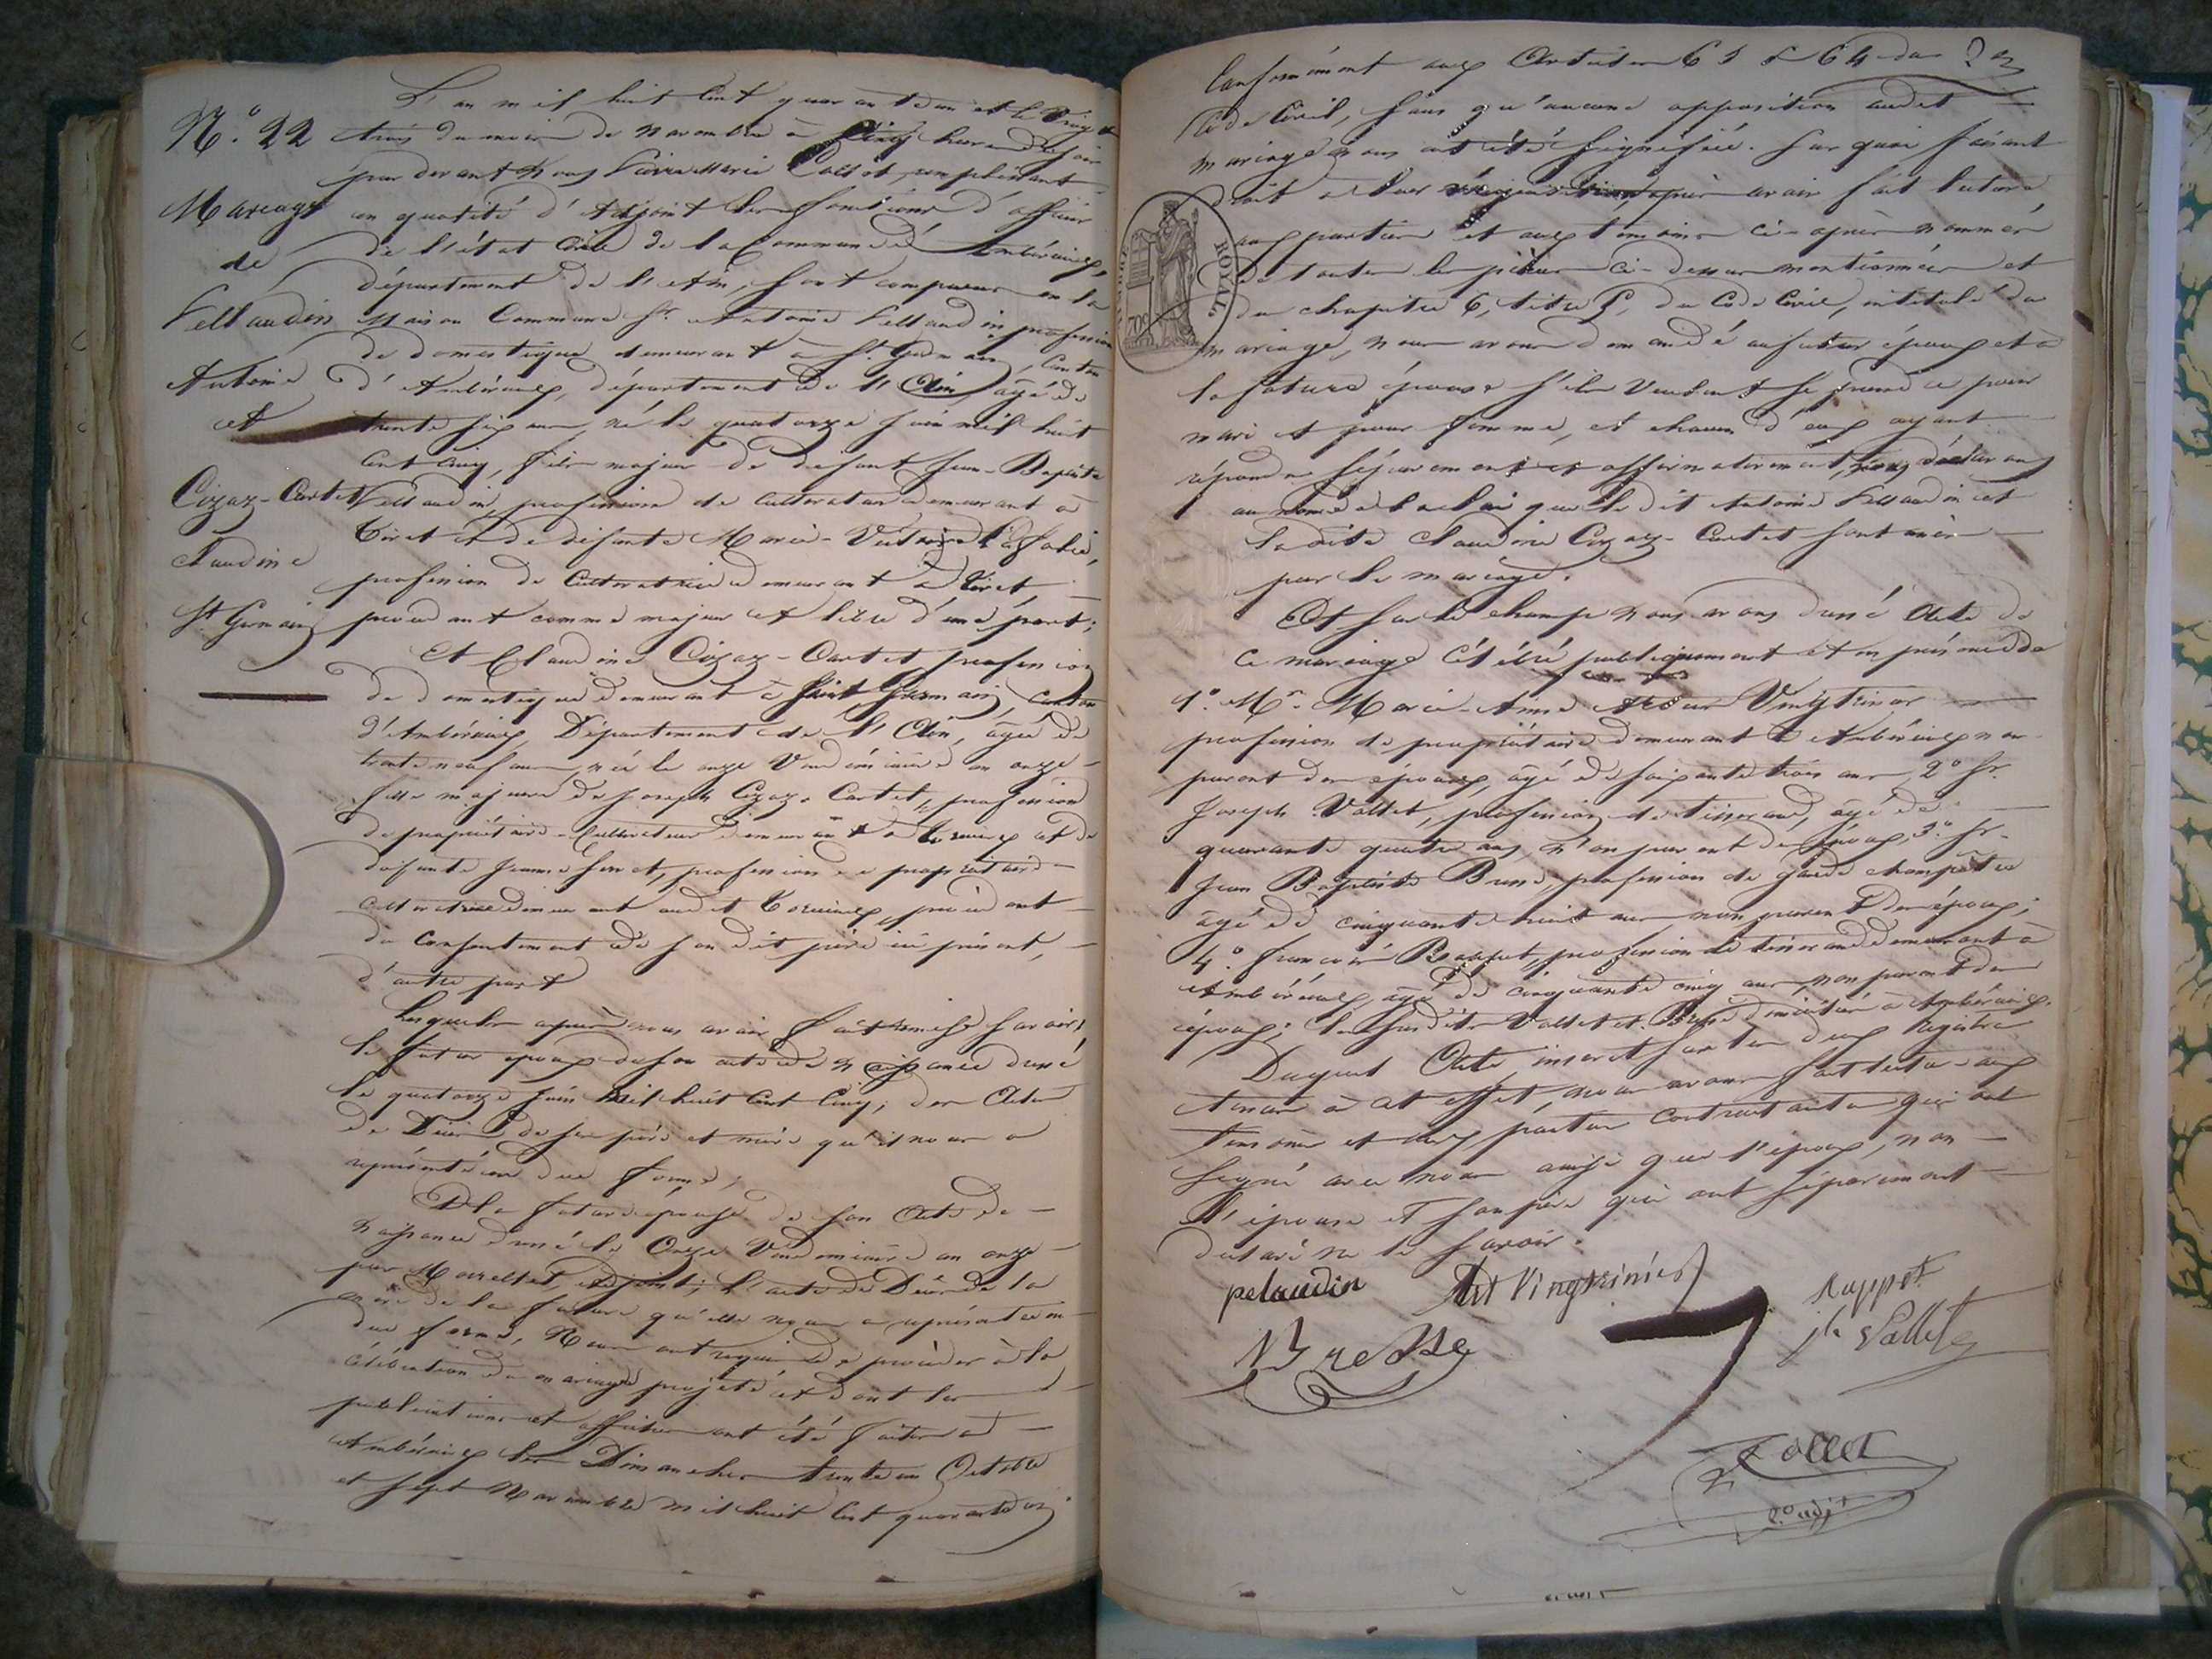 L'an mil huit Cent quarante un et le Vingt
N.º 22
trois du mois de Novembre à Cinq heures du soir
par devant Nous Pierre Marie Collet, remplissant
Mariage
en qualité d'Adjoint les fonctions d'officier
de
de l'état Civil de la Commune d'Ambérieux,
département de l'Ain, sont comparus en la
Pellaudin
Maison Commune Sr. Antoine Pellaudin, profession
de domestique demeurant à St. Germain, Canton
Antoine
d'Ambérieux, département de l'Ain, âgé de
et
trente six ans, né le quatorze Juin mil huit
Cent Cinq, fils majeur de defunt Jean-Baptiste
Cozaz-Cartet
Pellaudin, profession de Cultivateur demeurant à
et de défunte Marie-
Claudine
profession de Cultivatrice demeurant à
St Germain
procédant comme majeur et libre d'une part;
Et Claudine Cozaz-Cartet, profession
de domestique demeurant à Saint Germain, Canton
d'Ambérieux, Département de l'Ain, âgée de
trente neuf ans, née le onze Vendémiaire an onze
fille majeure de Joseph Cozaz-Cartet, profession
de propriétaire-Cultivateur demeurant à et de
défunte Jeanne profession de propriétaire
Cultivatrice demeurant audit procédant
du Consentement de son dit père ici présent,
d'autre part
Lesquels après nous avoir fait remise savoir:
le futur epoux de son acte de Naissance dressé
le quatorze Juin Mil huit Cent Cinq; des Actes
de Décès de ses père et mère qu'il nous a
représenté en due forme;
Et la future épouse de son Acte de
Naissance dressé le Onze Vendémiaire an onze
par adjoint; L'acte de Décès de la
mère de la future qu'elle nous a représenté en
due forme, Nous ont requis de procéder à la
célébration du mariage projeté et dont les
publications et affiches ont été faites à
Ambérieux les Dimanches trente un Octobre
et sept Novembre mil huit Cent quarante un
Conformément aux Articles 63 & 64 du
Code Civil, sans qu'aucune opposition audit
mariage nous ait été signifiée. Sur quoi faisant
droit à leur réquisition, après avoir fait lecture
aux parties et aux temoins ci-après nommés
de toutes les pièces ci-dessus mentionnées et
du chapitre 6, titre 5, du Code Civil, intitulé du
mariage, nous avons demandé au futur époux et à
la future épouse s'ils veulent se prendre pour
mari et pour femme, et chacun d'eux ayant
répondu séparément et affirmativement, nous déclarons
au nom de la loi que le dit Antoine Pellaudin et
la dite Claudine Cozaz-Cartet sont unis
par le mariage.
Et sur le champ nous avons dressé Acte de
ce mariage célébré publiquement et en présence de
1º. Mr. Marie-Anne Vingtrinier
profession de propriétaire demeurant à Ambérieux non
parent des époux, âgé de soixante trois ans, 2º Sr.
Joseph Vallet, profession de tisserand, âgé de
quarante quatre ans, non parent des époux, 3º. Sr.
Jean Baptiste Bresse, profession de garde champêtre
âgé de cinquante huit ans non parent des époux;
4.º François Rappet, profession de tisserand demeurant à
Ambérieux, âgé de cinquante cinq ans, non parent des
époux; les susdits Vallet et Bresse domiciliés à Ambérieux.
Duquel Acte, inscrit sur les deux Registres
tenus à cet effet, nous avons fait lecture aux
temoins et aux parties contractantes qui ont
signé avec nous ainsi que l'époux, non
l'épouse et son père qui ont séparément
declaré ne le savoir.
pelaudin
Vingtrinier
Rappet
Bresse
Jh Vallet
Collet
adjt
ROYAL